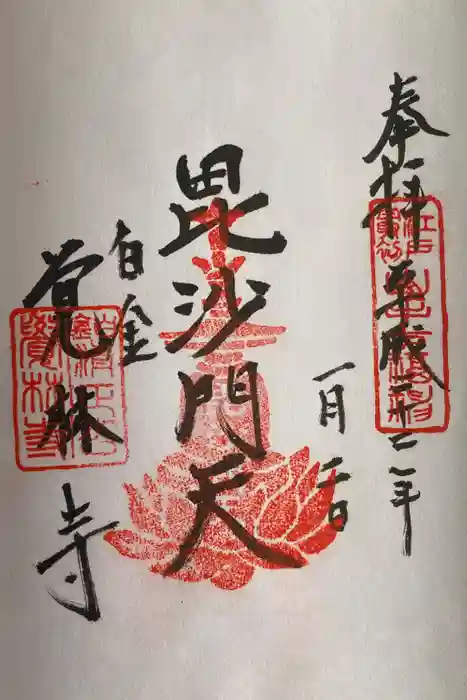 奉拝 平成二十二年
一月二日
毘沙門天
白金
覚林寺
覺林寺